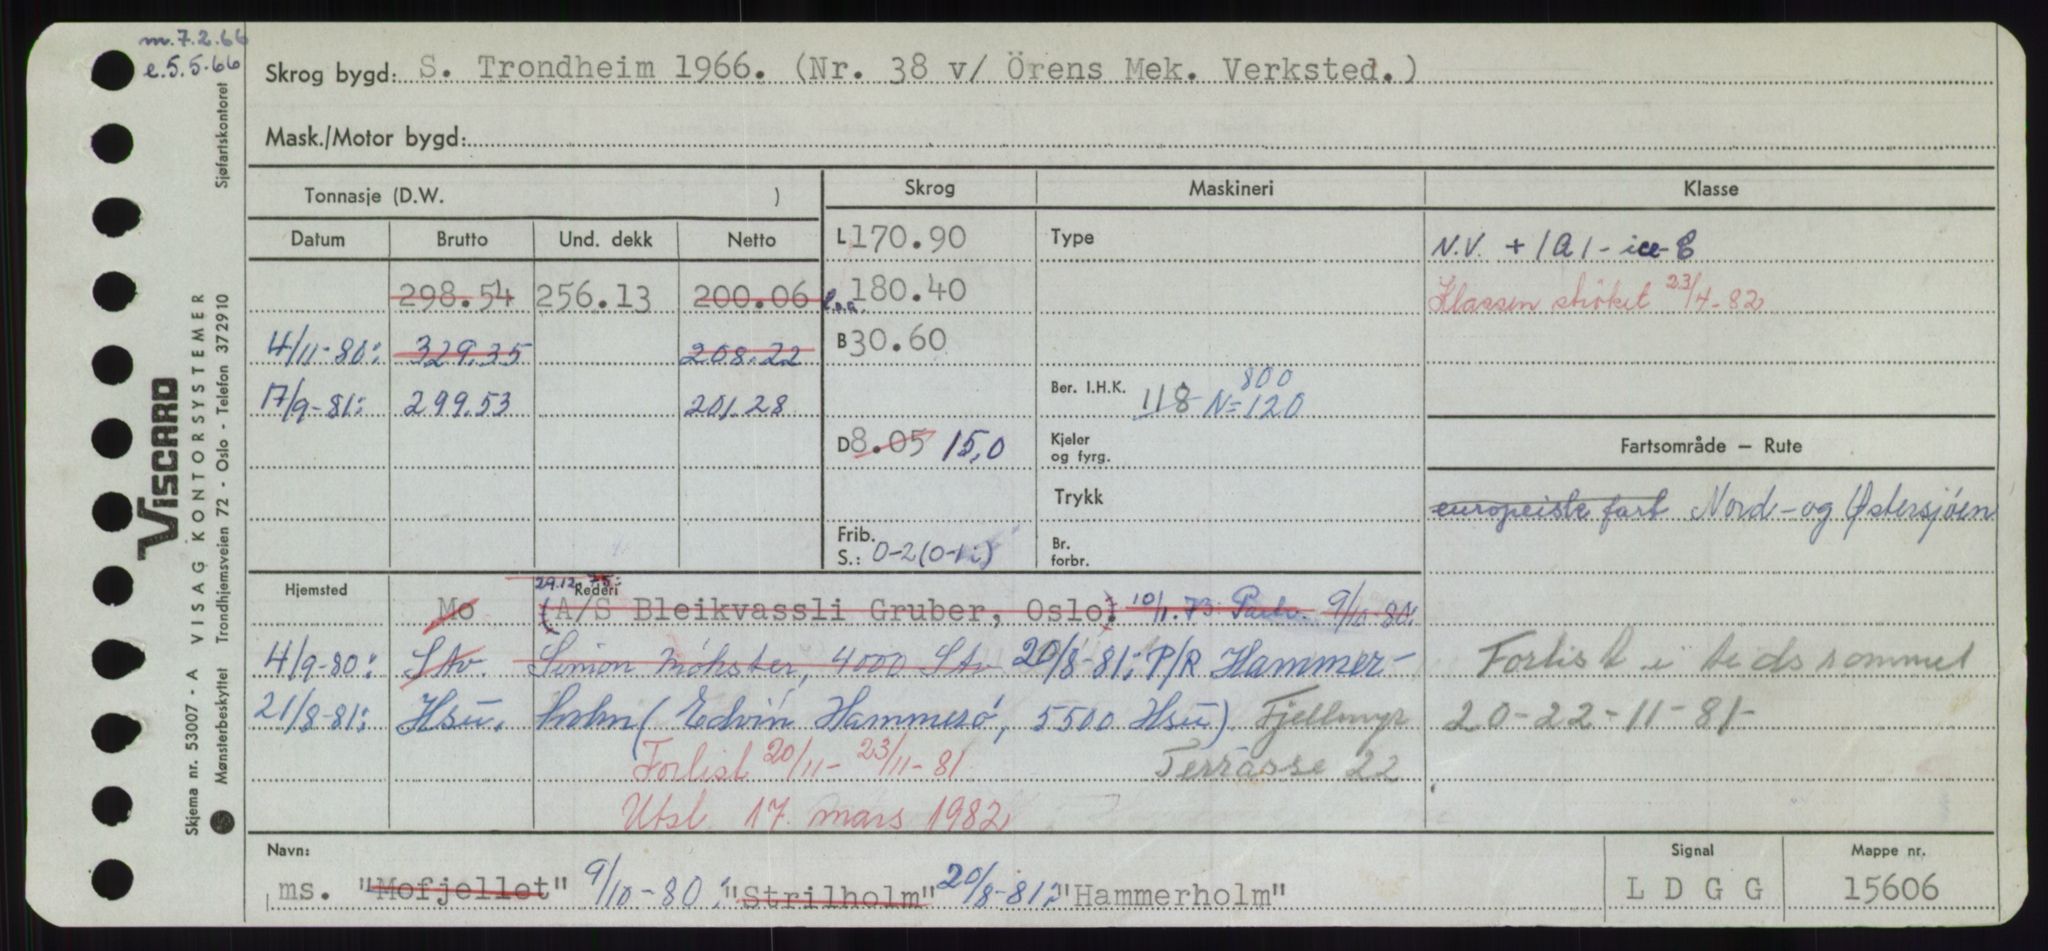 m.7.2.66
e.5.5.66
Skrog bygd: S. Trondheim 1966. (Nr. 38 v/ Örens Mek. Verksted.)
Mask./Motor bygd:
Tonnasje (D.W. )
Skrog
Maskineri
Klasse
Datum Brutto Und. dekk Netto
L 170.90
Type
N.V. + 1A1 - ice-C
298.54 256.13 200.06
l.o.a. 180.40
Klassen strøket 23/4-82
4/11-80: 329.35 208.22
B 30.60
17/9-81: 299.53 201.28
Ber. I.H.K. 118 N=120
800
D 8.05 15,0
Kjeler
og fyrg.
Fartsområde — Rute
Trykk
europeiske fart Nord- og Østersjøen
Frib.
S.: 0-2 (0-1)
Br.
forbr.
Hjemsted
29.12.75:
Rederi
Mo (A/S Bleikvassli Gruber, Oslo) 10/1.73 Partr. 9/10-80:
4/9-80: Stv. Simon Møkster, 4000 Stv 20/8-81: P/R Hammer-
Forlist i tidsrommet
21/8-81: Hsu. holm (Edvin Hammerø, 5500 Hsu) Fjellmyr
20-22-11-81
Forlist 20/11- 23/11-81
Terrasse 22
Utsl. 17. mars 1982
Navn:
Signal
Mappe nr.
ms. "Mofjellet" 9/10-80: "Strilholm" 20/8-81: "Hammerholm"
L D G G
15606
Sjøfartskontoret
VISCARD
VISAG KONTORSYSTEMER
Trondhjemsveien 72 - Oslo - Telefon 372910
Skjema nr. 53007 - A
Mønsterbeskyttet